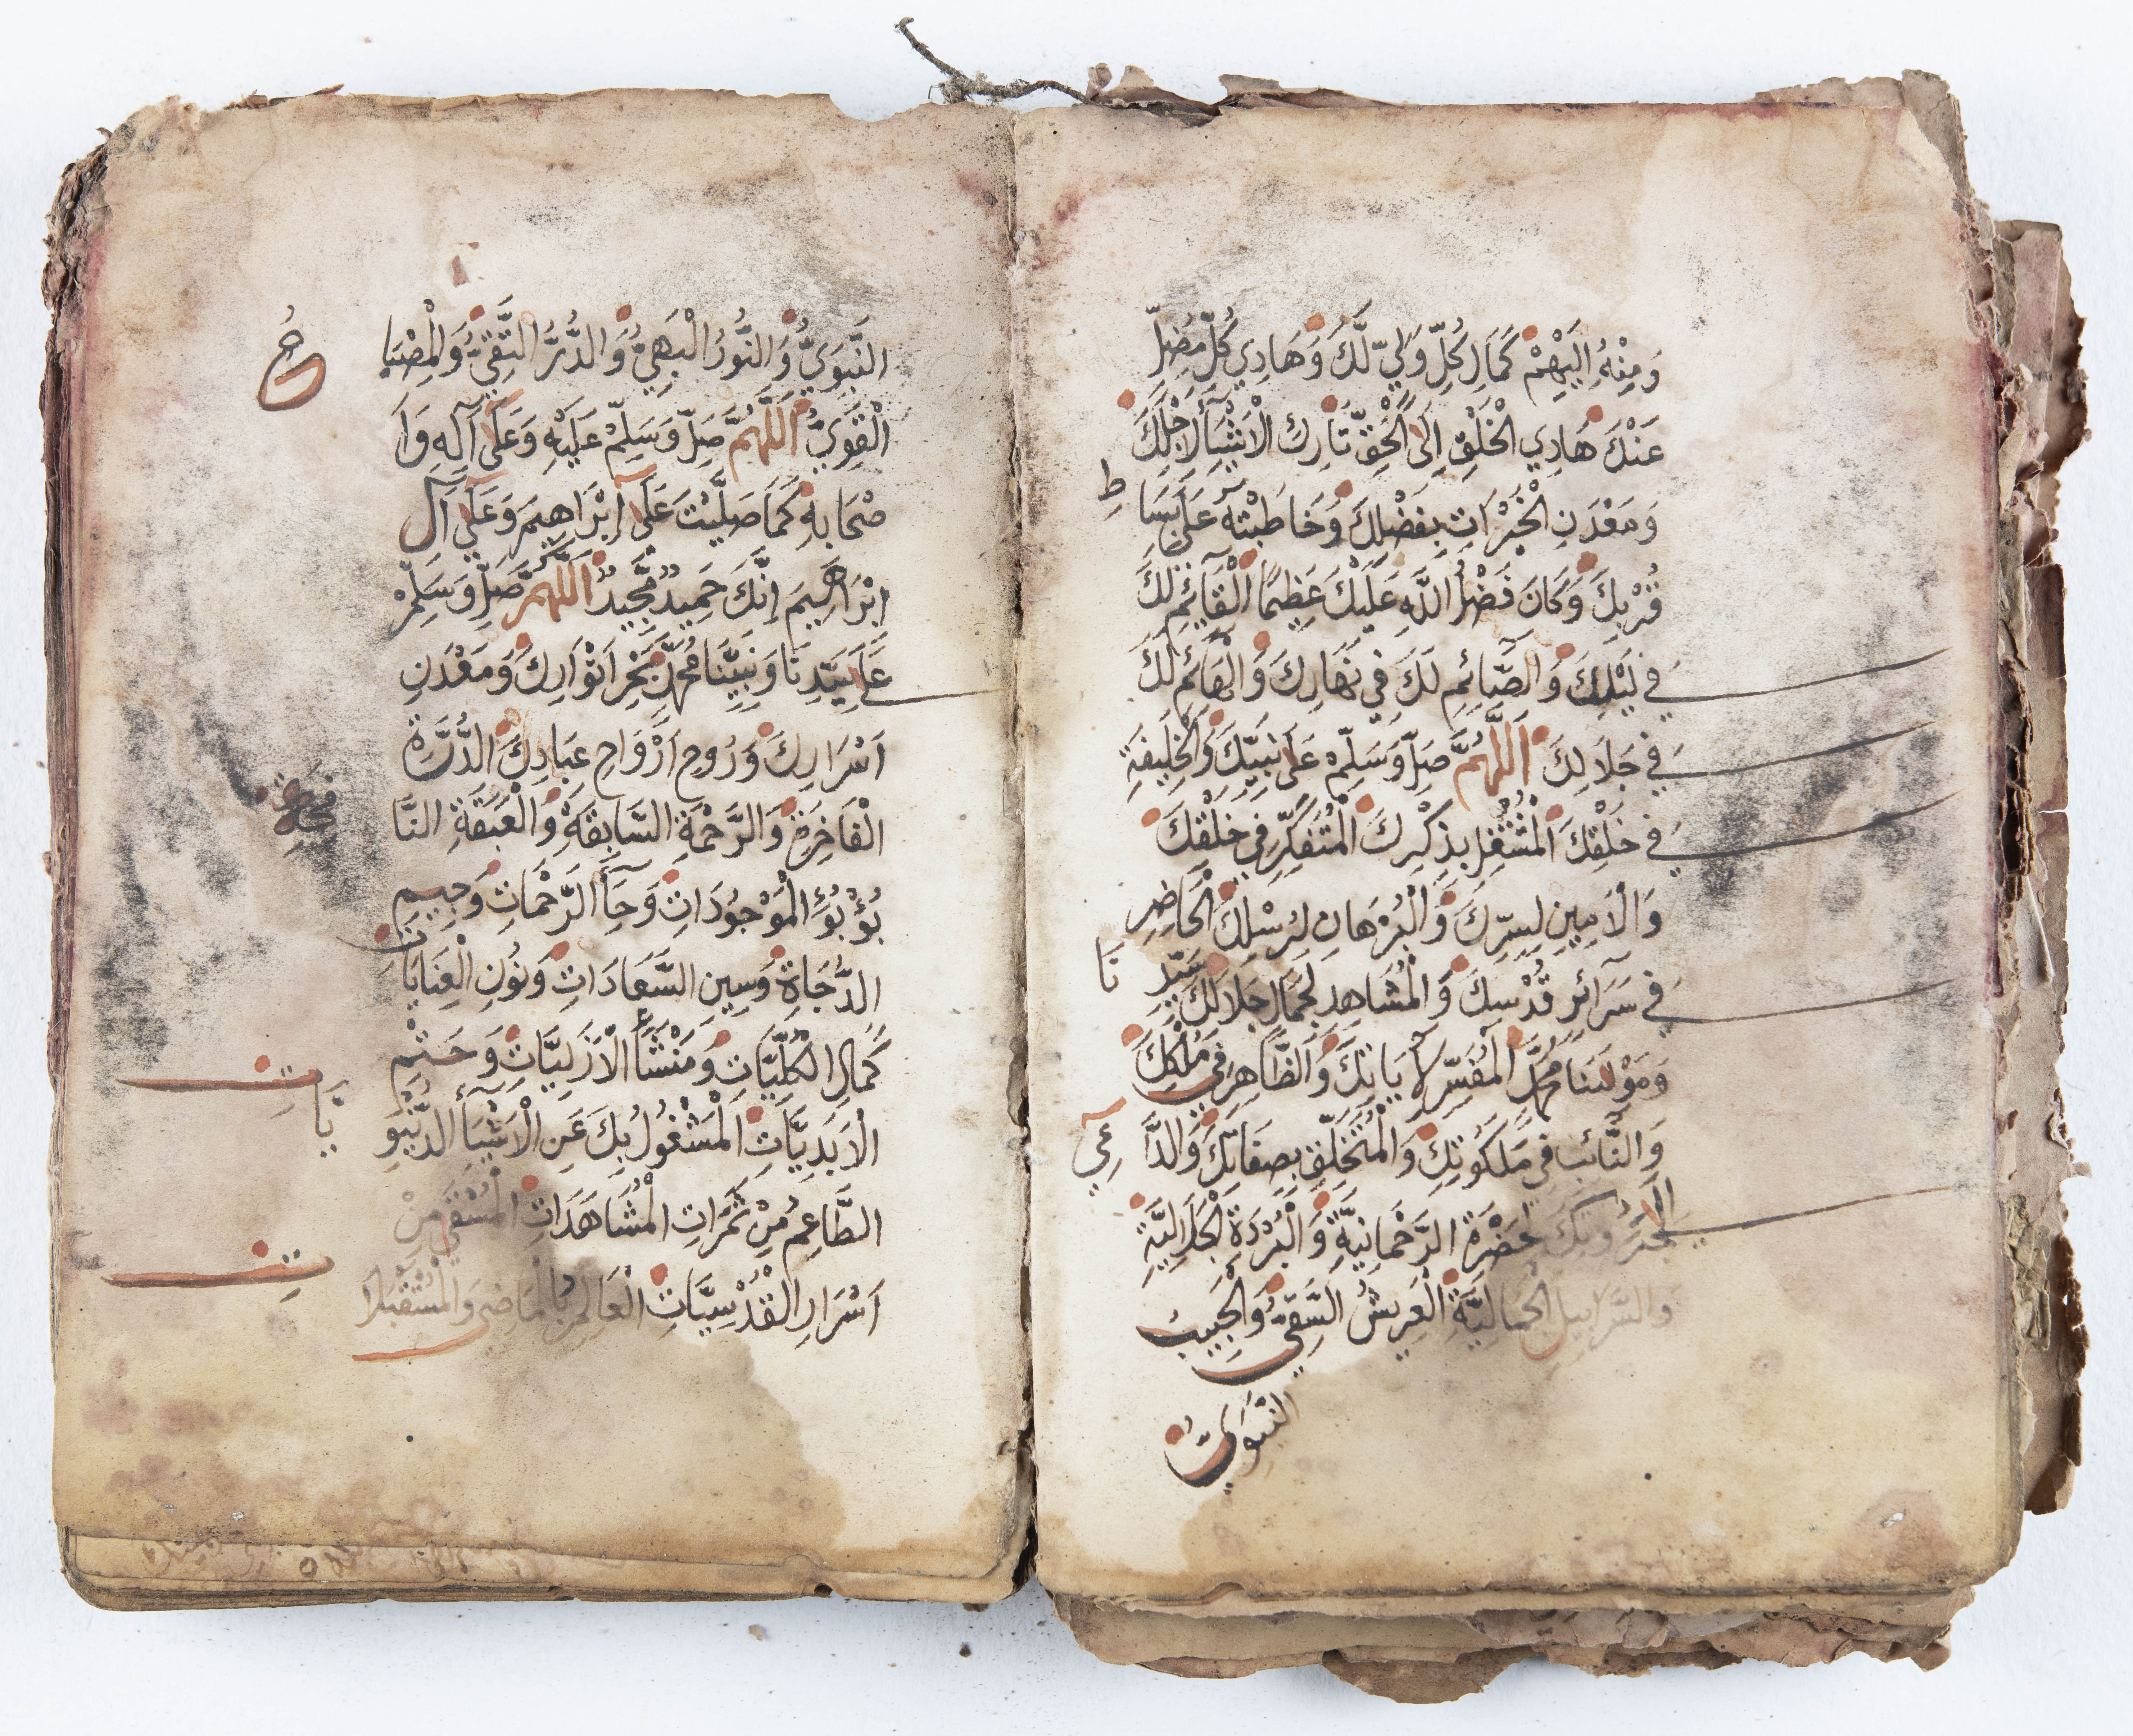 وَمِنْهُ اِلَيْهِمْ كَمَالِ كُلِّ وَلِيٍّ لَّكَ وَهَادِي كُلِّ مُضِلٍّ
عَنْكَ هَادِي الْخَلْقِ اِلَى الْحَقِّ تَارِكِ الْاَشْيَآءِ لِاَجْلِكَ
وَمَعْدَنِ الْخَيْرَاتِ بِفَضْلِكَ وَخَاطَبْتَهُ عَلَى بِسَاطِ
قُرْبِكَ وَكَانَ فَضْلُ اللَّهِ عَلَيْكَ عَظِيمًا الْقَآئِمِ لَكَ
فِي لَيْلِكَ وَالصَّآئِمِ لَكَ فِي نَهَارِكَ وَالْهَآئِمِ لَكَ
فِي جَلَالِكَ اَللَّهُمَّ صَلِّ وَسَلِّمْ عَلَى نَبِيِّكَ وَالْخَلِيفَةِ
فِي خَلْقِكَ الْمُشْتَغِلِ بِذِكْرِكَ الْمُتَفَكِّرِ فِي خَلْقِكَ
وَالْاَمِينِ لِسِرِّكَ وَالْبُرْهَانِ لِرُسْلِكَ الْحَاضِرِ
فِي سَرَآئِرِ قُدْسِكَ وَالْمُشَاهِدِ لِجَمَالِ جَلَالِكَ سَيِّدِنَا
وَمَوْلَىنَا مُحَمَّدٍ الْمُفَسِّرِ لِاٰيَاتِكَ وَالظَّاهِرِ فِي مُلْكِكَ
وَالنَّآئِبِ فِي مَلَكُوتِكَ وَالْمُتَخَلِّقِ بِصِفَاتِكَ وَالدَّاعِي
اِلَى جَبَرُوتِكَ الْحَضْرَةِ الرَّحْمَانِيَّةِ وَالْبُرْدَةِ الْجَلَالِيَّةِ
وَالسَّرَابِيلِ الْجَمَالِيَّةِ الْعَرِيشُ السَّقِيُّ وَالْحَبِيبُ
النَّبَوِيُّ
النَّبَوِيُّ وَالنُّورُ الْبَهِيُّ وَالدُّرُّ النَّقِيُّ وَالْمِصْبَاحُ
الْقَوِيُّ اَللَّهُمَّ صَلِّ وَسَلِّمْ عَلَيْهِ وَعَلَى آلِهِ وَاَ
صْحَابِهِ كَمَا صَلَّيْتَ عَلَى اِبْرَاهِيمَ وَعَلَى آلِ
اِبْرَاهِيمَ اِنَّكَ حَمِيدٌ مَّجِيدٌ اَللَّهُمَّ صَلِّ وَسَلِّمْ
عَلَى سَيِّدِنَا وَنَبِيِّنَا مُحَمَّدٍ بَحْرِ اَنْوَارِكَ وَمَعْدَنِ
اَسْرَارِكَ وَرُوحِ اَرْوَاحِ عِبَادِكَ الدُّرَّةِ
الْفَاخِرَةِ وَالرَّحْمَةِ السَّابِقَةِ وَالْعَبَقَةِ النَّا
بُؤْبُؤِ الْمَوْجُودَاتِ وَحَآءِ الرَّحْمَاتِ وَجِيمِ
الدَّرَجَاةِ وَسِينِ السَّعَادَاتِ وَنُونِ الْعِنَايَاتِ
كَمَالِ الْكُلِّيَّاتِ وَمَنْشَأِ الْاَزَلِيَّاتِ وَخَتْمِ
الْاَبَدِيَّاتِ الْمَشْغُولِ بِكَ عَنِ الْاَشْيَآءِ الدُّنْيَوِيَّاتِ
الطَّاعِمِ مِنْ ثَمَرَاتِ الْمُشَاهَدَاتِ الْمُسْقَى مِنْ
اَسْرَارِ الْقُدْسِيَّاتِ الْعَالِمِ بِالْمَاضِي وَالْمُسْتَقْبَلَاتِ